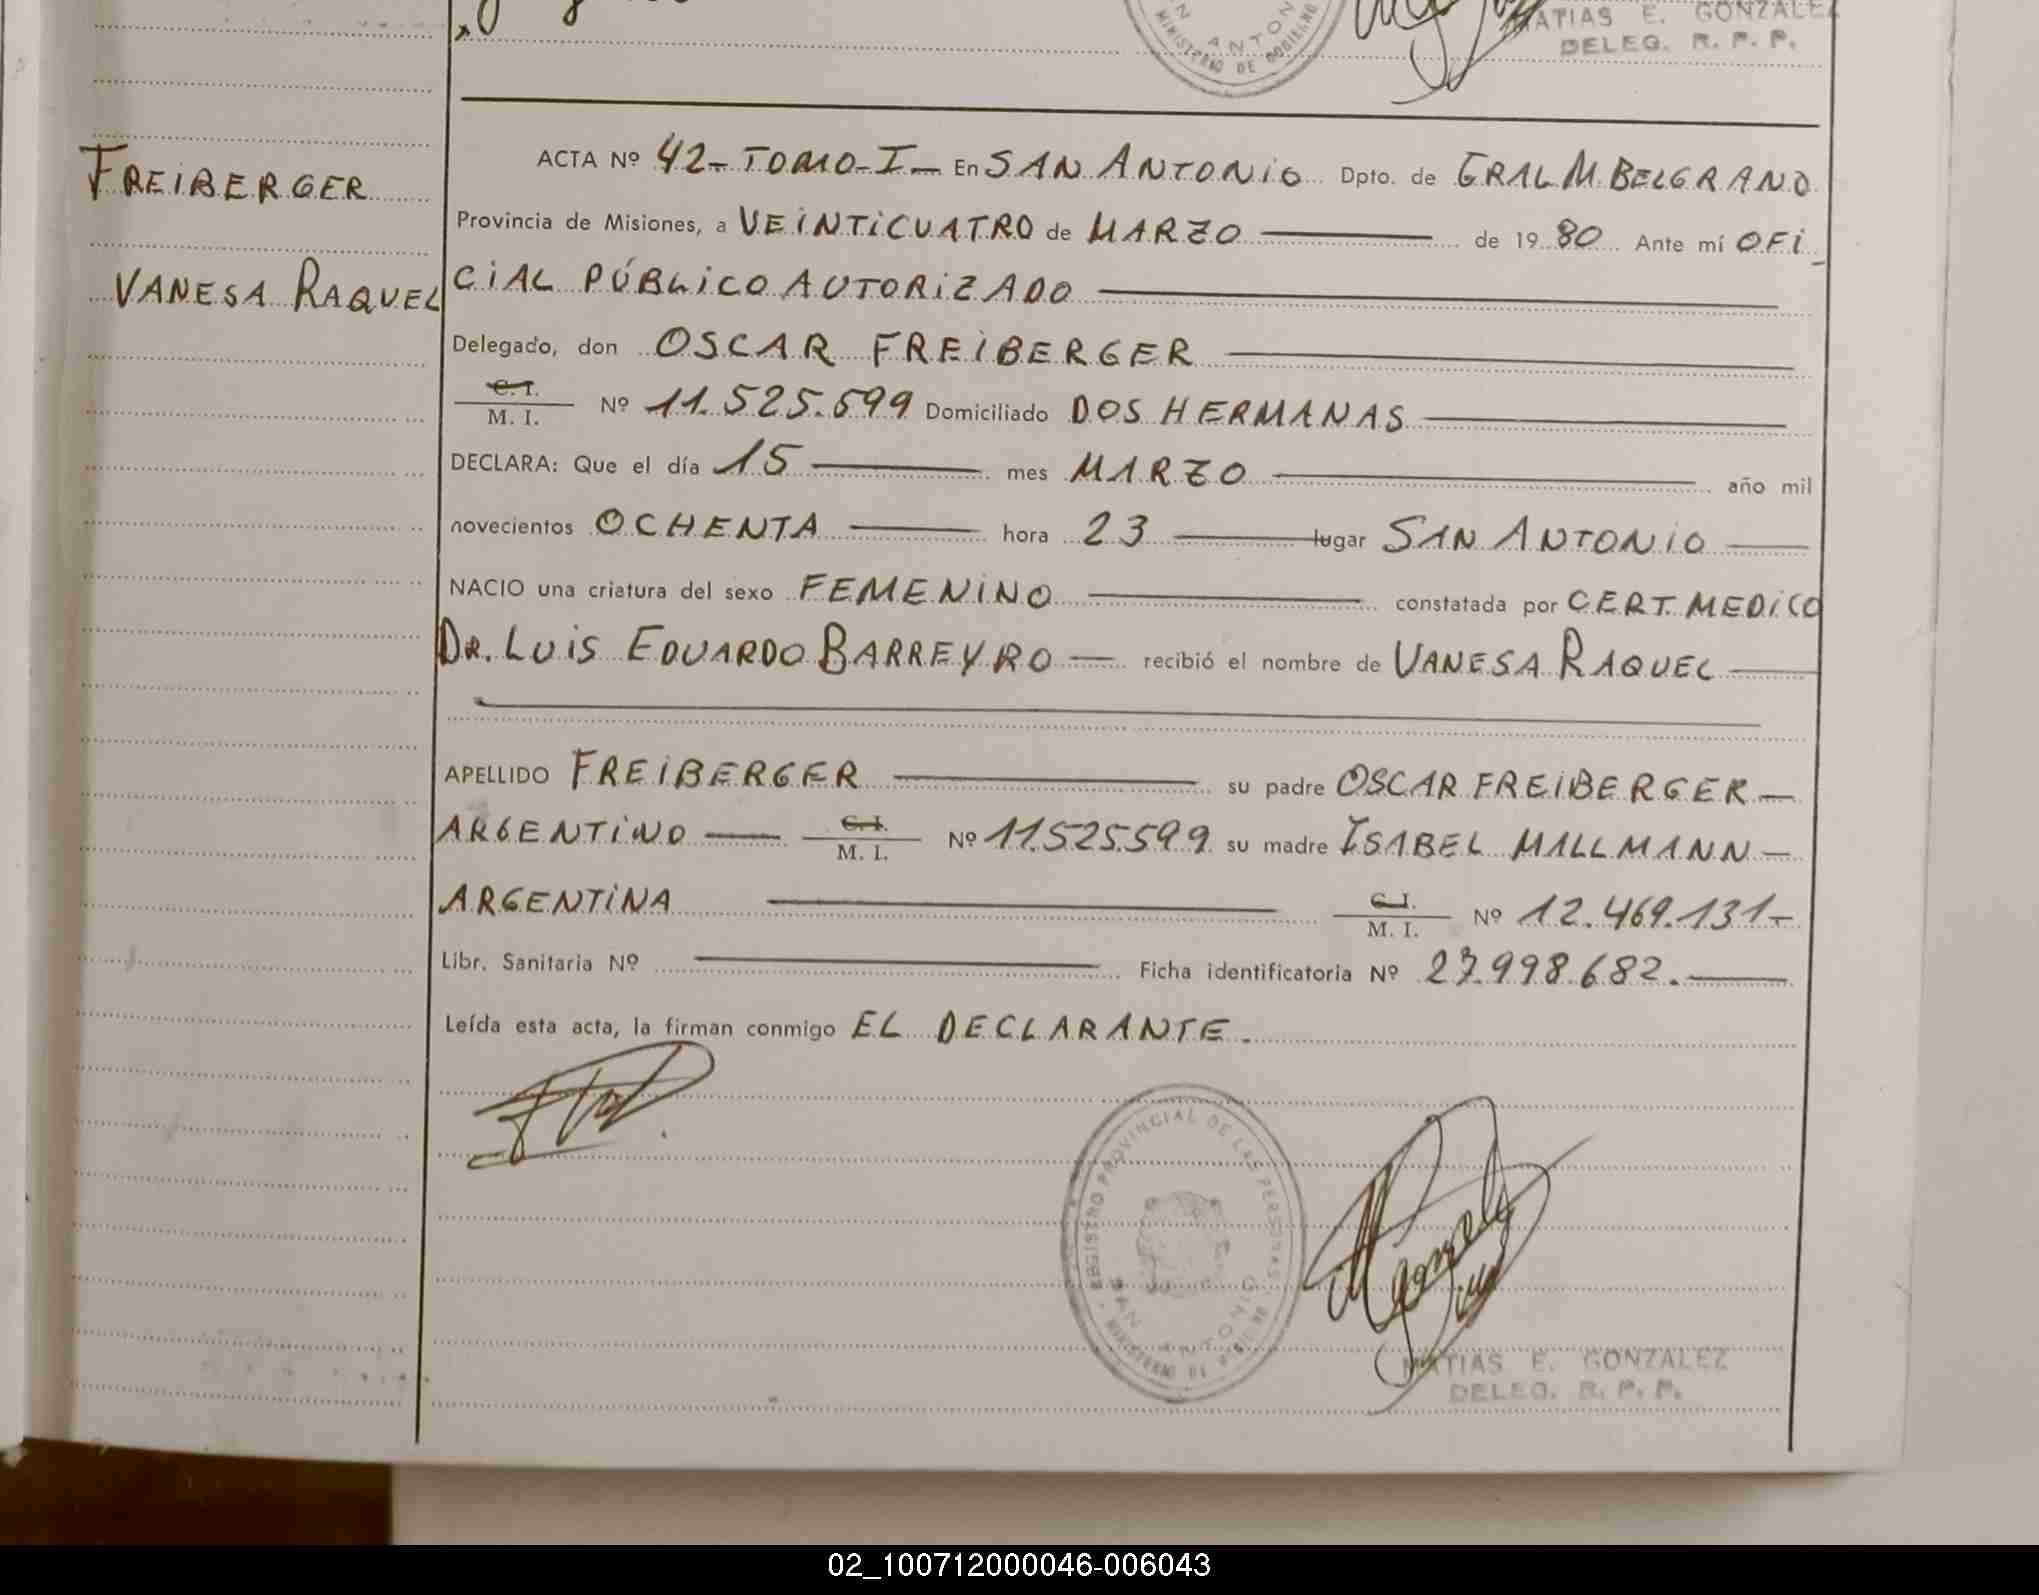 MATIAS E. GONZALEZ
DELEG. R. P. P.
MINISTERIO DE GOBIERNO
FREIBERGER
VANESA RAQUEL
ACTA Nº 42- TOMO-I- En SAN ANTONIO Dpto. de GRAL M. BELGRANO
Provincia de Misiones, a VEINTICUATRO de MARZO de 1980 Ante mí OFI
CIAL PÚBLICO AUTORIZADO
Delegado, don OSCAR FREIBERGER
C. I.
M. I. Nº 11.525.599 Domiciliado DOS HERMANAS
DECLARA: Que el día 15 mes MARZO año mil
novecientos OCHENTA hora 23 lugar SAN ANTONIO
NACIO una criatura del sexo FEMENINO constatada por CERT. MEDICO
DR. LUIS EDUARDO BARREYRO recibió el nombre de VANESA RAQUEL
APELLIDO FREIBERGER su padre OSCAR FREIBERGER
ARGENTINO C. I. M. I. Nº 11.525.599 su madre ISABEL MALLMANN
ARGENTINA C. I. M. I. Nº 12.469.131-
Libr. Sanitaria Nº Ficha identificatoria Nº 27.998.682.
Leída esta acta, la firman conmigo EL DECLARANTE.
REGISTRO PROVINCIAL DE LAS PERSONAS
SAN ANTONIO
MINISTERIO DE GOBIERNO
MATIAS E. GONZALEZ
DELEG. R. P. P.
02_100712000046-006043